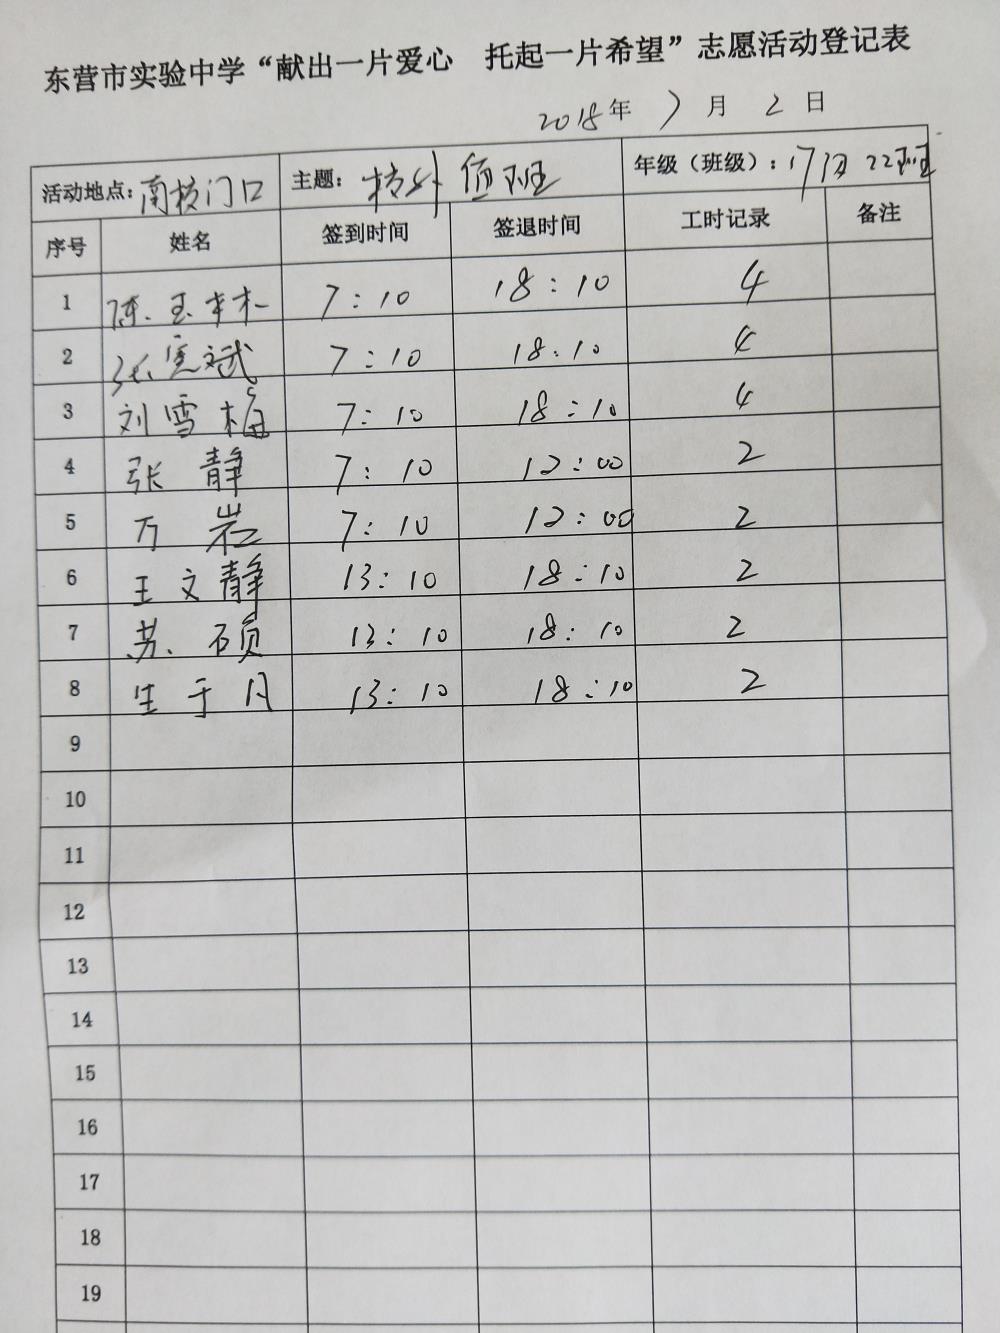 东营市实验中学“献出一片爱心 托起一片希望”志愿活动登记表
2018年 7月 2日
活动地点：南校门口 主题：校外值班 年级（班级）：17级22班
序号 姓名 签到时间 签退时间 工时记录 备注
1 陈玉 7:10 18:10 4
2 张宪斌 7:10 18:10 4
3 刘雪梅 7:10 18:10 4
4 张静 7:10 12:00 2
5 万岩 7:10 12:00 2
6 王文静 13:10 18:10 2
7 苏硕 13:10 18:10 2
8 生于凡 13:10 18:10 2
9
10
11
12
13
14
15
16
17
18
19